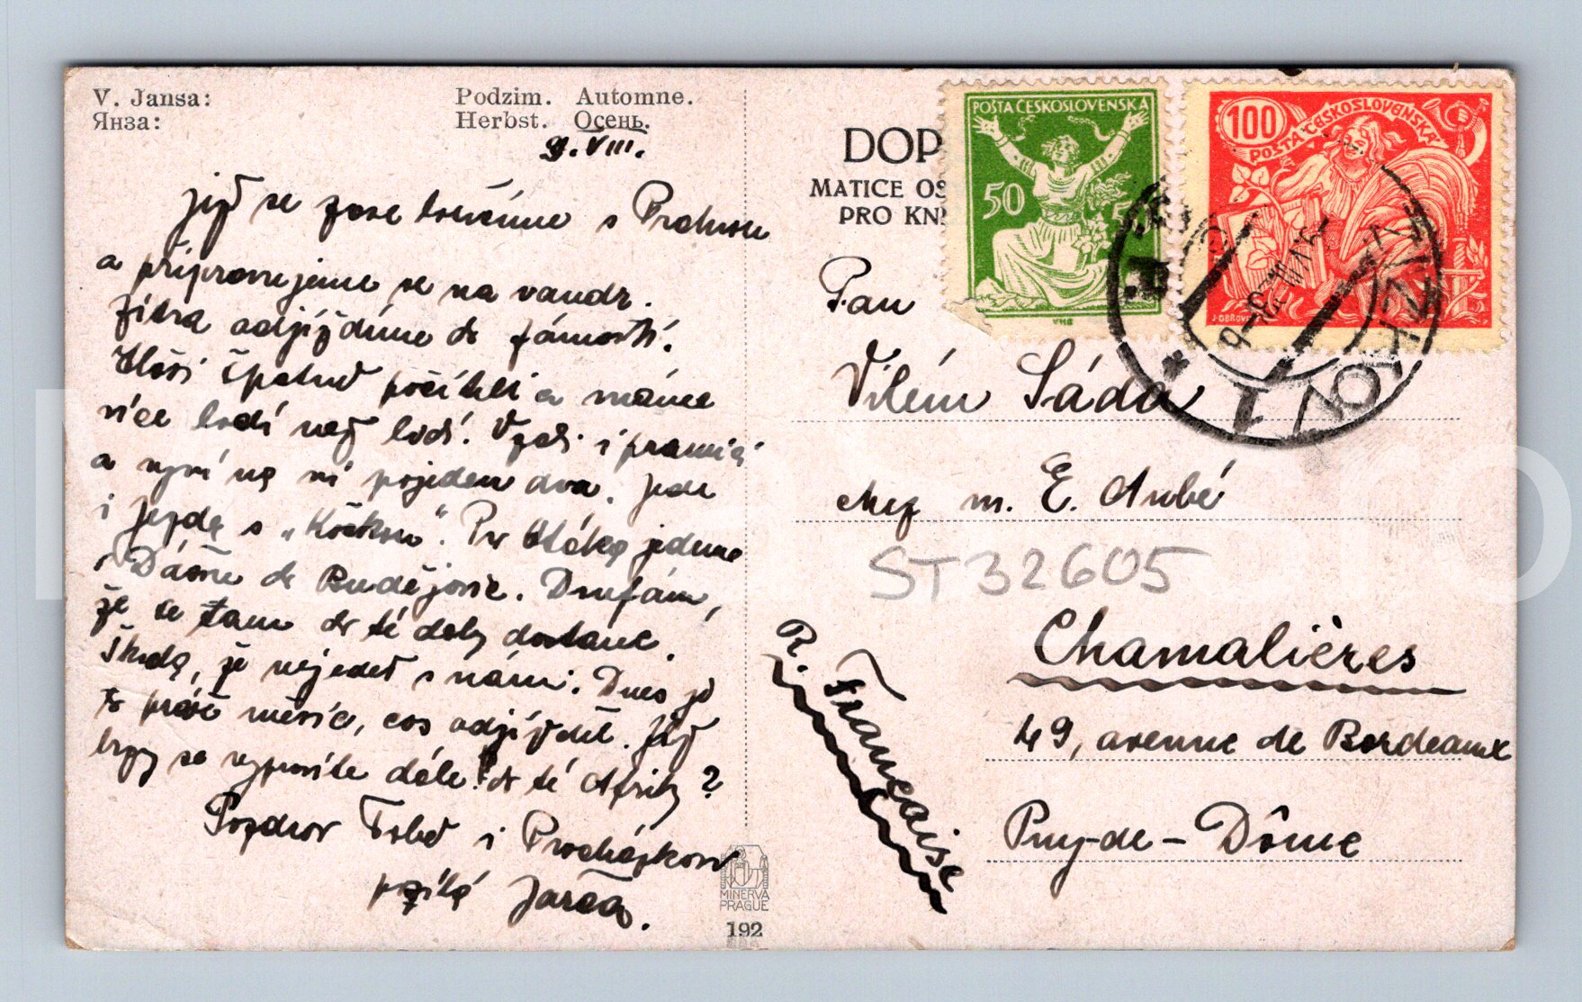 V. Jansa:
Янза:
Podzim. Automne.
Herbst. Осень.
9.VIII.
již se zase loučíme s Prahou
a připravujeme se na vandr.
Zítra odjíždíme do
špatně počítali a máme
více lodí než lidí. Vzali i
a nyní na ní pojedou dva. Jede
i Jezda s „Kočkou“. Po jedeme
do Budějovic. Doufám,
že se tam do té doby dostane.
Škoda, že nejedeš s námi. Dnes je
to právě měsíc, cos odjížděl. Již
brzy se vypravíte dále do té Afriky?
Pozdrav Tobě i Procházkovi
posílá Jarča.
MINERVA
PRAGUE
192
DOP
MATICE OS
PRO KN
POŠTA ČESKOSLOVENSKÁ
50
50
VHB
100
POŠTA ČESKOSLOVENSKÁ
ŽIŽKOV 1
Pan
Vilém Sáda
chez m. E. Aubé
ST32605
Chamalières
49, avenue de Bordeaux
Puy-de-Dôme
R. Française